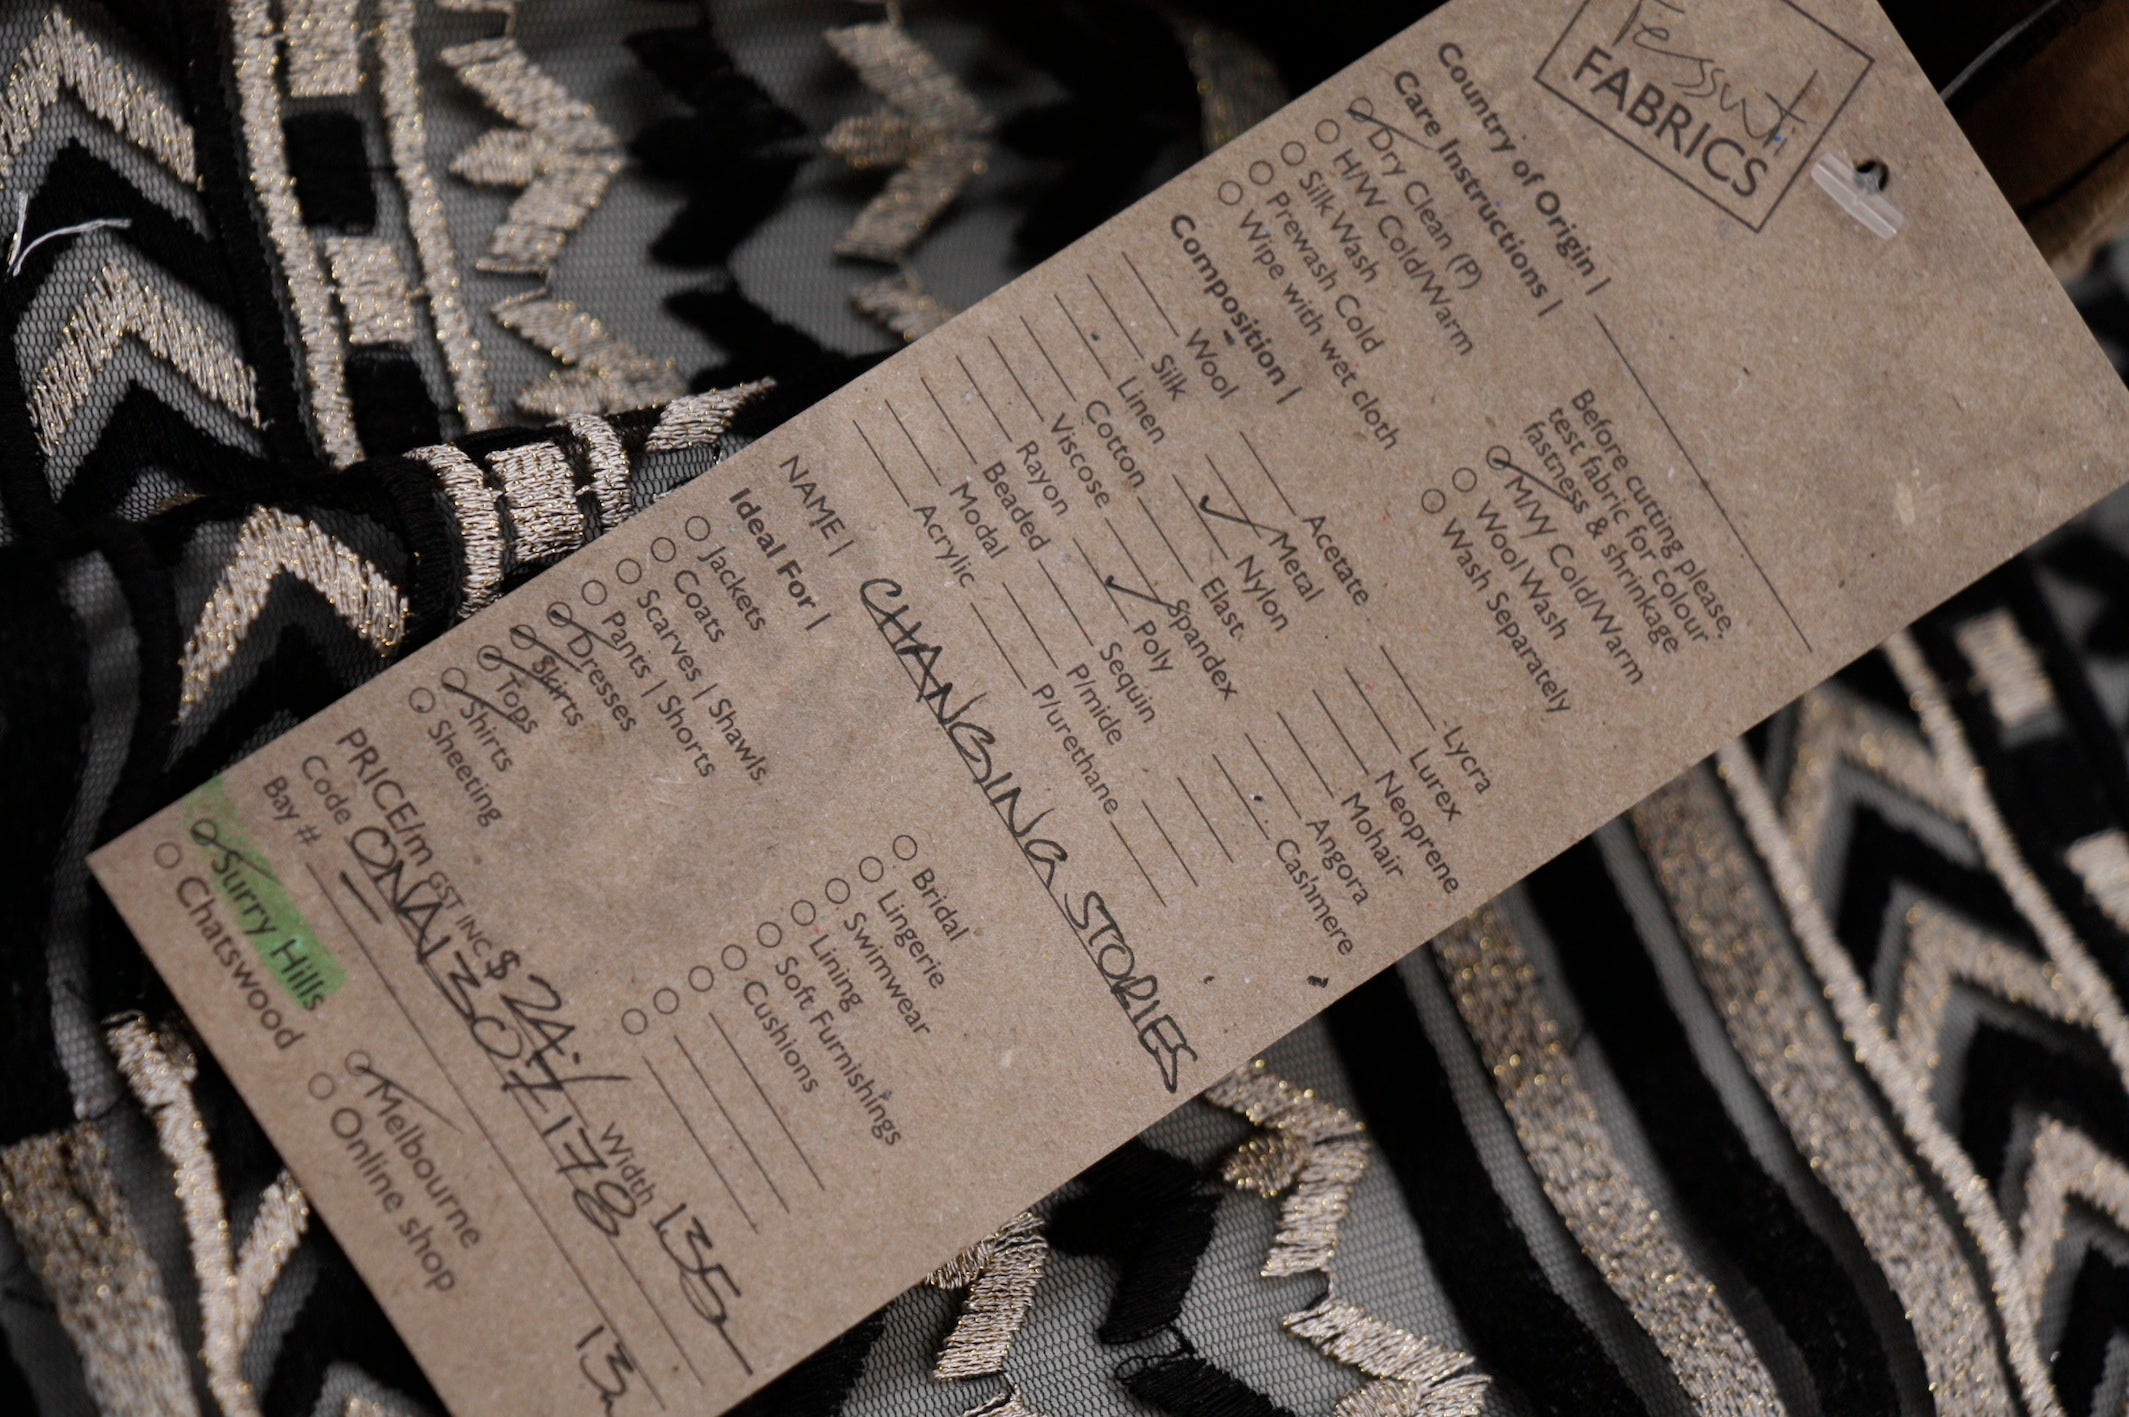 Tessuti
FABRICS
Country of Origin |
Care Instructions |
Dry Clean (P)
H/W Cold/Warm
Silk Wash
Prewash Cold
Wipe with wet cloth
Before cutting please,
test fabric for colour
fastness & shrinkage
M/W Cold/Warm
Wool Wash
Wash Separately
Composition |
Wool Acetate Lycra
Silk Metal Lurex
Linen Nylon Neoprene
Cotton Elast. Mohair
Viscose Spandex Angora
Rayon Poly Cashmere
Beaded Sequin
Modal P/mide
Acrylic P/urethane
NAME | CHANGING STORIES
Ideal For |
Jackets Bridal
Coats Lingerie
Scarves | Shawls Swimwear
Pants | Shorts Lining
Dresses Soft Furnishings
Skirts Cushions
Tops
Shirts
Sheeting
PRICE/m GST INC. $ 24.- Width 135
Code ONA1307178
Bay # 13
Surry Hills Melbourne
Chatswood Online shop